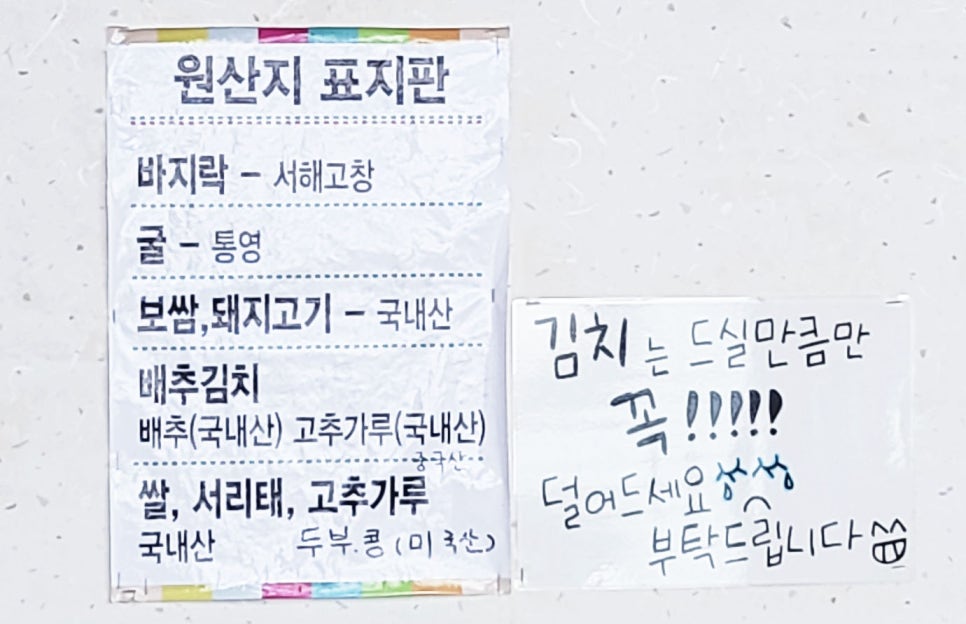 원산지 표지판
바지락 - 서해고창
굴 - 통영
보쌈,돼지고기 - 국내산
배추김치
배추(국내산) 고추가루(국내산)
중국산
쌀, 서리태, 고추가루
국내산 두부.콩(미국산)
김치는 드실만큼만
꼭!!!!!
덜어드세요
부탁드립니다